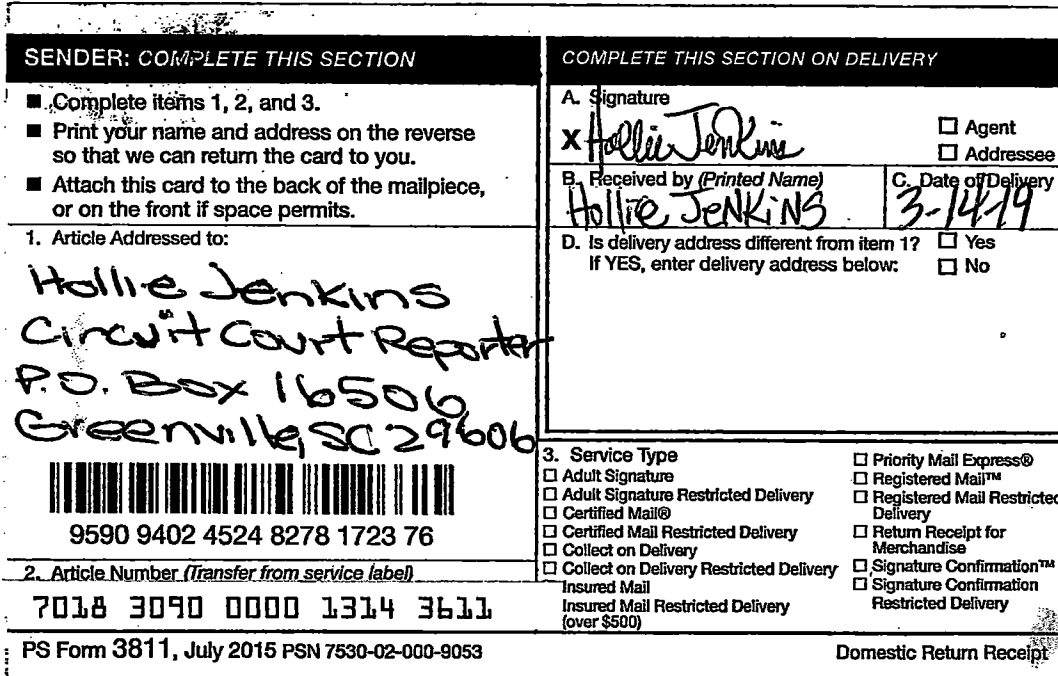 SENDER: COMPLETE THIS SECTION
■ Complete items 1, 2, and 3.
■ Print your name and address on the reverse
so that we can return the card to you.
■ Attach this card to the back of the mailpiece,
or on the front if space permits.
1. Article Addressed to:
Hollie Jenkins
Circuit Court Reporter
P.O. Box 16506
Greenville, SC 29606
9590 9402 4524 8278 1723 76
2. Article Number (Transfer from service label)
7018 3090 0000 1314 3611
COMPLETE THIS SECTION ON DELIVERY
A. Signature
X Hollie Jenkins
☐ Agent
☐ Addressee
B. Received by (Printed Name)
Hollie JeNKiNS
C. Date of Delivery
3-14-19
D. Is delivery address different from item 1? ☐ Yes
If YES, enter delivery address below: ☐ No
3. Service Type
☐ Adult Signature
☐ Adult Signature Restricted Delivery
☐ Certified Mail®
☐ Certified Mail Restricted Delivery
☐ Collect on Delivery
☐ Collect on Delivery Restricted Delivery
Insured Mail
Insured Mail Restricted Delivery
(over $500)
☐ Priority Mail Express®
☐ Registered Mail™
☐ Registered Mail Restricted
Delivery
☐ Return Receipt for
Merchandise
☐ Signature Confirmation™
☐ Signature Confirmation
Restricted Delivery
PS Form 3811, July 2015 PSN 7530-02-000-9053
Domestic Return Receipt